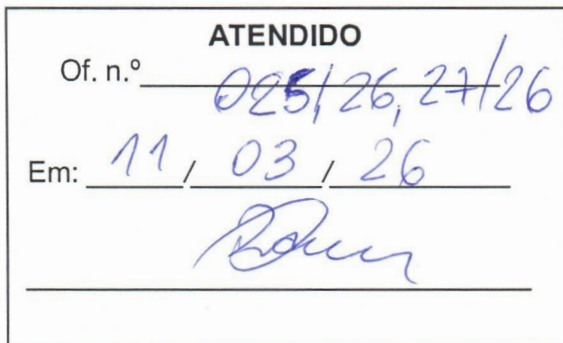 ATENDIDO
Of. n.º 025/26, 27/26
Em: 11 / 03 / 26